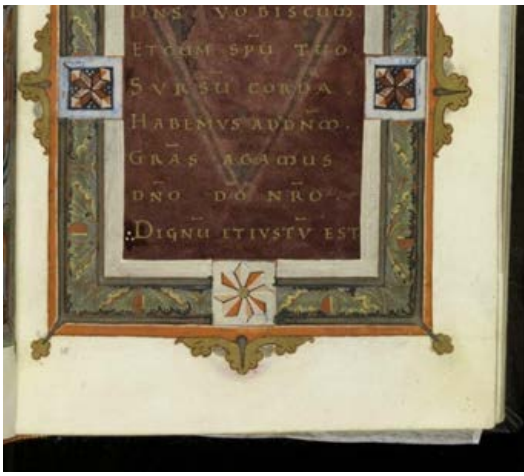 DN̄S VOBISCUM
ETCUM SPŪ TUO
SVRSŪ CORDA .
HABEMVS ADDN̄M .
GRĀS AGAMUS
DN̄O DŌ NR̄O .
DIGNŪ ETIVSTŪ EST